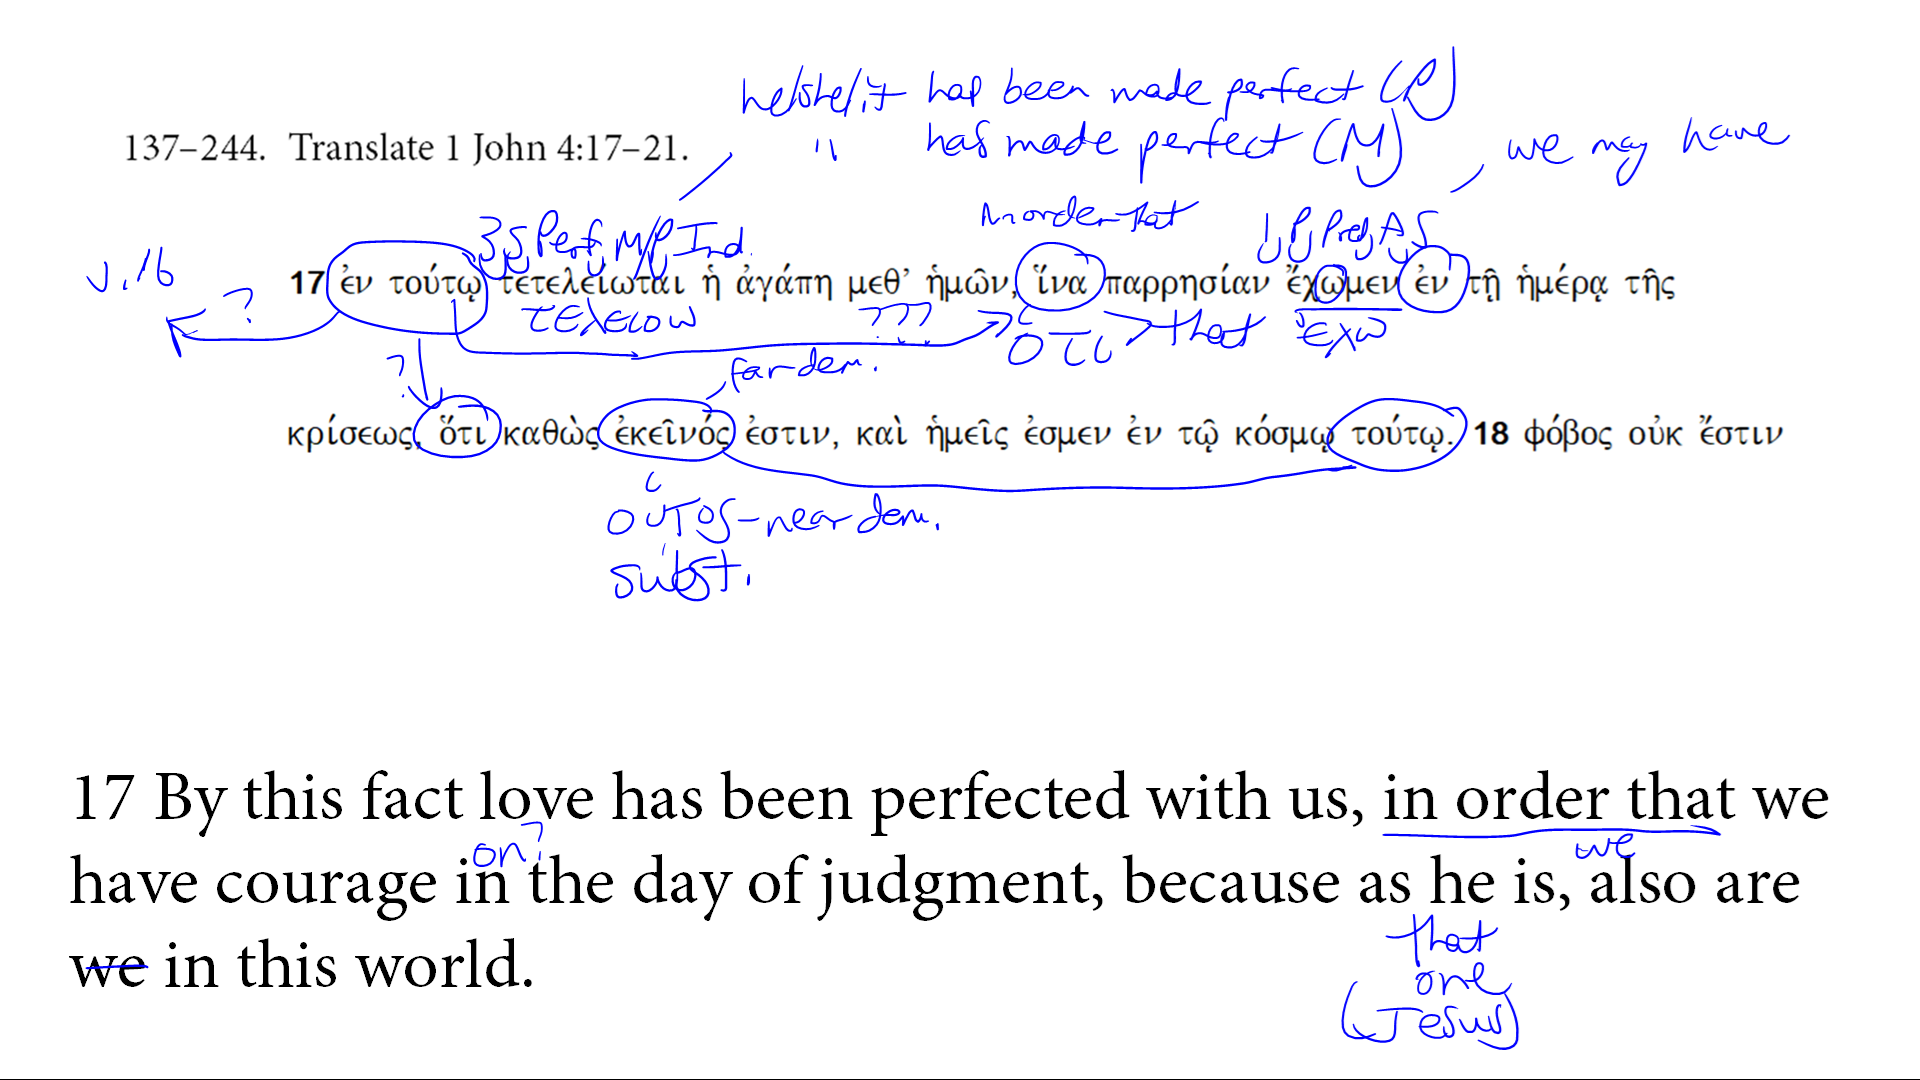 he/she/it has been made perfect (P)
137–244. Translate 1 John 4:17–21.
" has made perfect (M)
we may have
in order that
3S Perf M/P Ind.
1 P Pres A S
v. 16
17 ἐν τούτῳ τετελείωται ἡ ἀγάπη μεθ’ ἡμῶν, ἵνα παρρησίαν ἔχωμεν ἐν τῇ ἡμέρᾳ τῆς
?
τελειοω
???
ὁτι > that
ἐχω
?
far dem.
κρίσεως, ὅτι καθὼς ἐκεῖνός ἐστιν, καὶ ἡμεῖς ἐσμεν ἐν τῷ κόσμῳ τούτῳ. 18 φόβος οὐκ ἔστιν
οὑτος - near dem.
subst.
17 By this fact love has been perfected with us, in order that we
on?
we
have courage in the day of judgment, because as he is, also are
that
one
(Jesus)
we in this world.